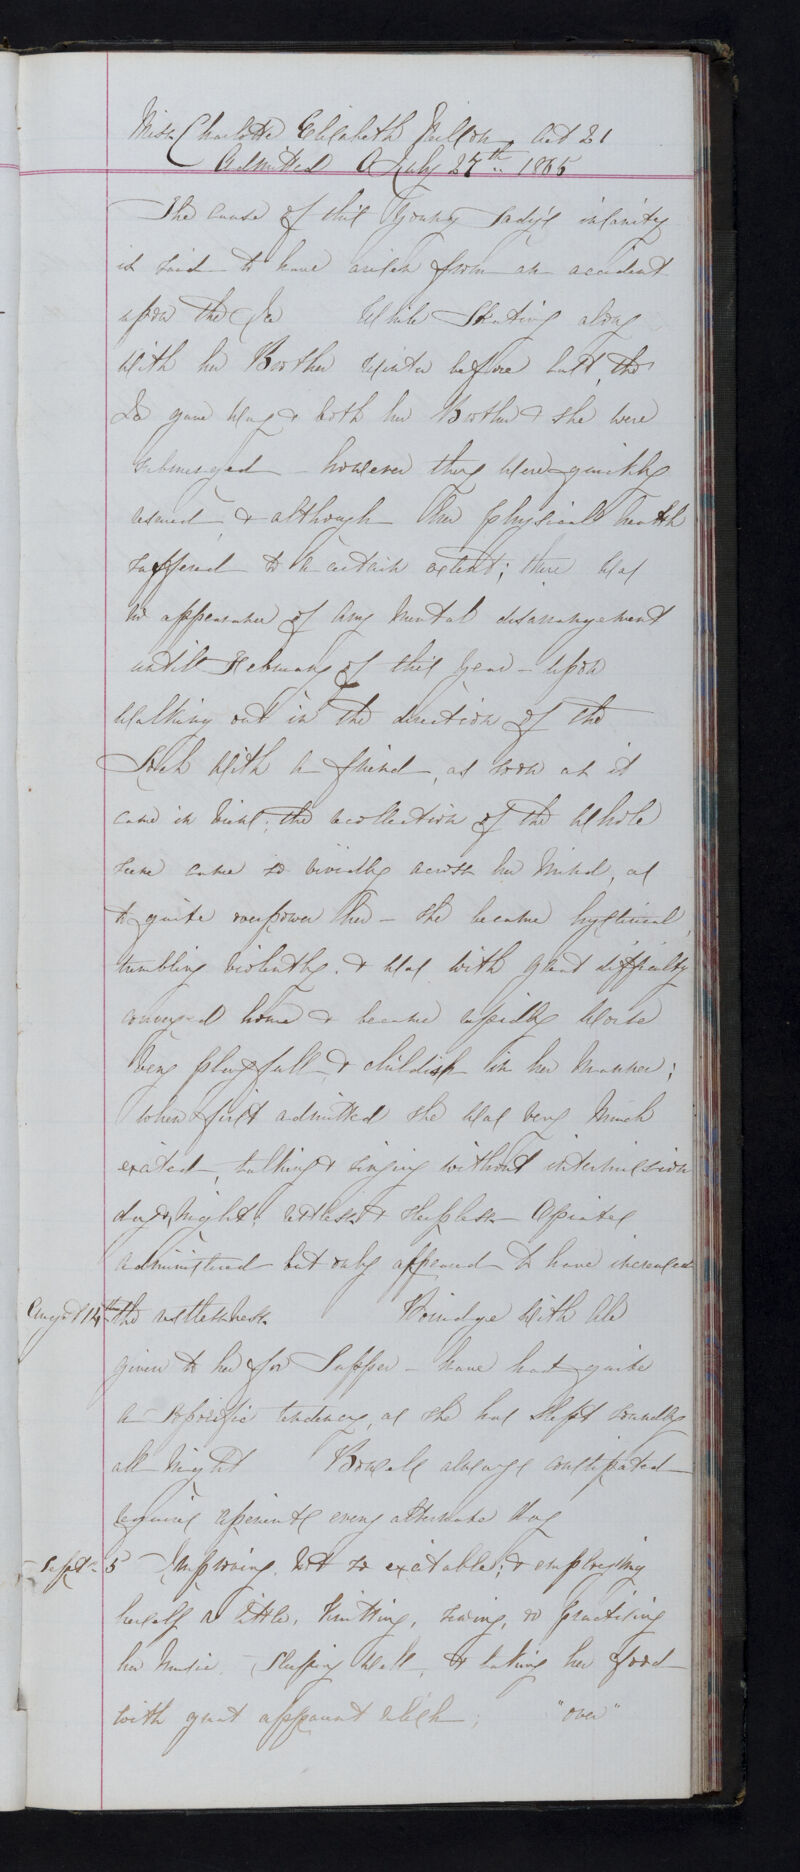 Miss Charlotte Elizabeth Aet 21
Admitted July 27th 1865
The cause of this Young Lady's insanity
is said to have arisen from an accident
upon the Ice While Skating along
With her Brother Winter before last, the
Ice gave Way & both her Brother & she were
submerged - however they were quickly
rescued, & although her physical health
suffered to a certain extent; there Was
no appearance of Any Mental disarrangement
until February of this Year - Upon
Walking out in the direction of the
Loch With a friend, as soon as it
came in View, the recollection of the Whole
scene came so vividly across her Mind, as
to quite overpower her - she became hysterical,
trembling violently. & Was with great difficulty
conveyed home & became rapidly Worse
Very playfull & childish in her Manner;
When first admitted she Was very Much
excited, talking & singing without intermission
day & Night. restless & sleepless - Opiates
administered but only appeared to have increased
August 14th the restlessness. Porridge With Ale
given to her for Supper - have had quite
a soporific tendency, as she has Slept soundly
all Night Bowels always constipated
requires aperients every alternate Day
Sept 5 Improving. Not so excitable; & employing
herself a little, Knitting, sewing, or practising
her Music. Sleeping Well, & taking her food
with great apparent relish; "over"